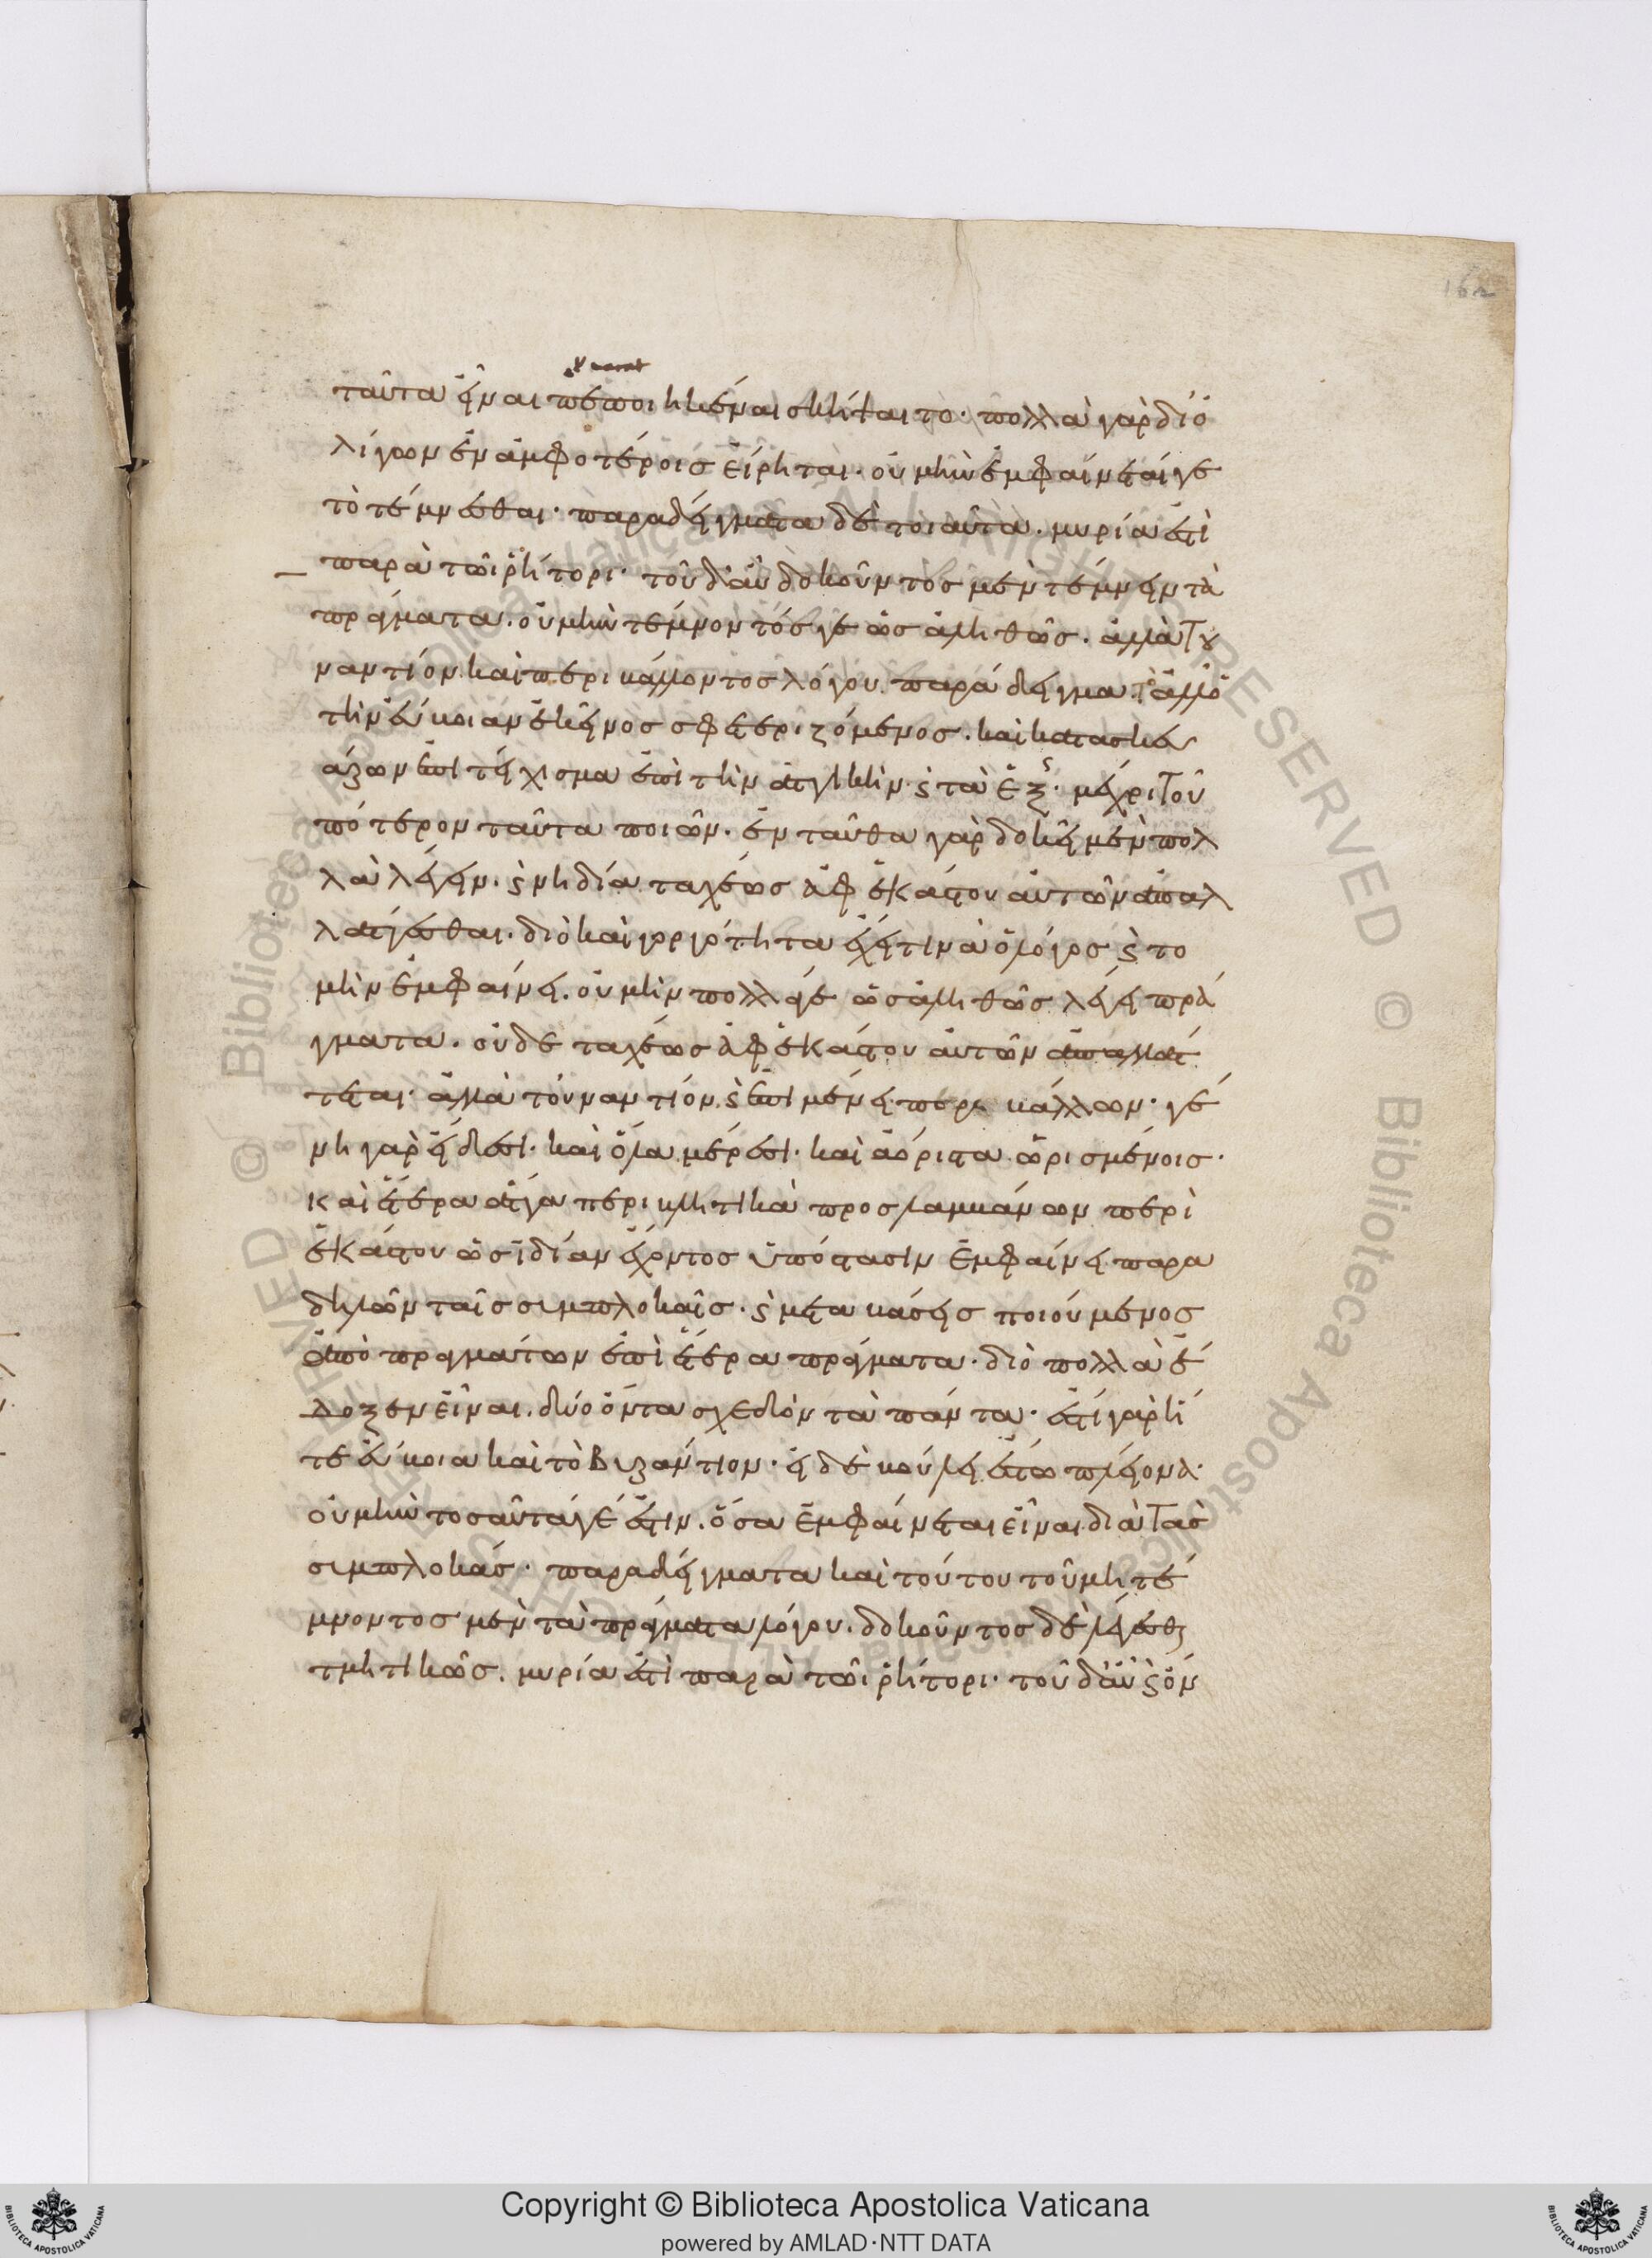 162
ταῦτα εἶναι πεποιημέναι σκήψαιτο· πολλὰ γὰρ δι ὀ
λίγων ἐν ἀμφοτέροις εἴρηται· οὐ μὴν ἐμφαίνεταί γε
τὸ τέμνεσθαι· παραδείγματα δὲ τοιαῦτα· μυρία ἐστὶ
παρὰ τῶι ῥήτορι· τοῦ δ' αὖ δοκοῦντος μὲν τέμνειν τὰ
πράγματα· οὐ μὴν τέμνοντός γε ὡς ἀληθῶς· ἀλλὰ τοὐ
ναντίον καὶ περιβάλλοντος λόγου παράδειγμα· τὸ ἀλλ' ὁ
τὴν εὔβοιαν ἐκεῖνος σφετεριζόμενος· καὶ κατασκευ
άζων ἐπιτείχισμα ἐπὶ τὴν ἀττικὴν ϗ τὰ ἑξ· μέχρι τοῦ
πότερον ταῦτα ποιῶν· ἐνταῦθα γὰρ δοκεῖ μὲν πολ
λὰ λέγειν· ϗ μὴ διὰ ταχέως ἀφ' ἑκάστου αὐτῶν ἀπαλ
λάττεσθαι· διὸ καὶ γοργότητα ἔχει τινὰ ὁ λόγος ϗ το
μὴν ἐμφαίνει· οὐ μὴν πολλά γε ὡς ἀληθῶς λέγει πρά
γματα· οὐδὲ ταχέως ἀφ' ἑκάστου αὐτῶν ἀπαλλάτ
τεται· ἀλλὰ τοὐναντίον ϗ ἐπιμένει περιβάλλων· γέ
νη γὰρ εἴδεσι· καὶ ὅλα μέρεσι· καὶ ἀόριστα ὡρισμένοις·
καὶ ἕτερα ἄττα περιβλητικὰ προσλαμβάνων περὶ
ἑκάστου ὡς ἰδίαν ἔχοντος ὑπόστασιν ἐμφαίνει παρα
δηλῶν ταῖς συμπλοκαῖς· ϗ μεταβάσεις ποιούμενος
ἀπὸ πραγμάτων ἐπὶ ἕτερα πράγματα· διὸ πολλὰ ἔ
δοξεν εἶναι, δύο ὄντα σχεδὸν τὰ πάντα· ἔστι γὰρ ἥ
τε εὔβοια καὶ τὸ βυζάντιον· εἰ δὲ βούλει ἔστω πλείονα·
οὐ μὴν τοσαῦτά γέ ἐστιν, ὅσα ἐμφαίνεται εἶναι διὰ τὰς
συμπλοκάς· παραδείγματα καὶ τούτου τοῦ μὴ τέ
μνοντος μὲν τὰ πράγματα λόγου· δοκοῦντος δὲ λέγεσθ
τμητικῶς, μυρία ἐστὶ παρὰ τῶι ῥήτορι· τοῦ δ' αὖ ϗ ὂν
Copyright © Biblioteca Apostolica Vaticana
powered by AMLAD·NTT DATA